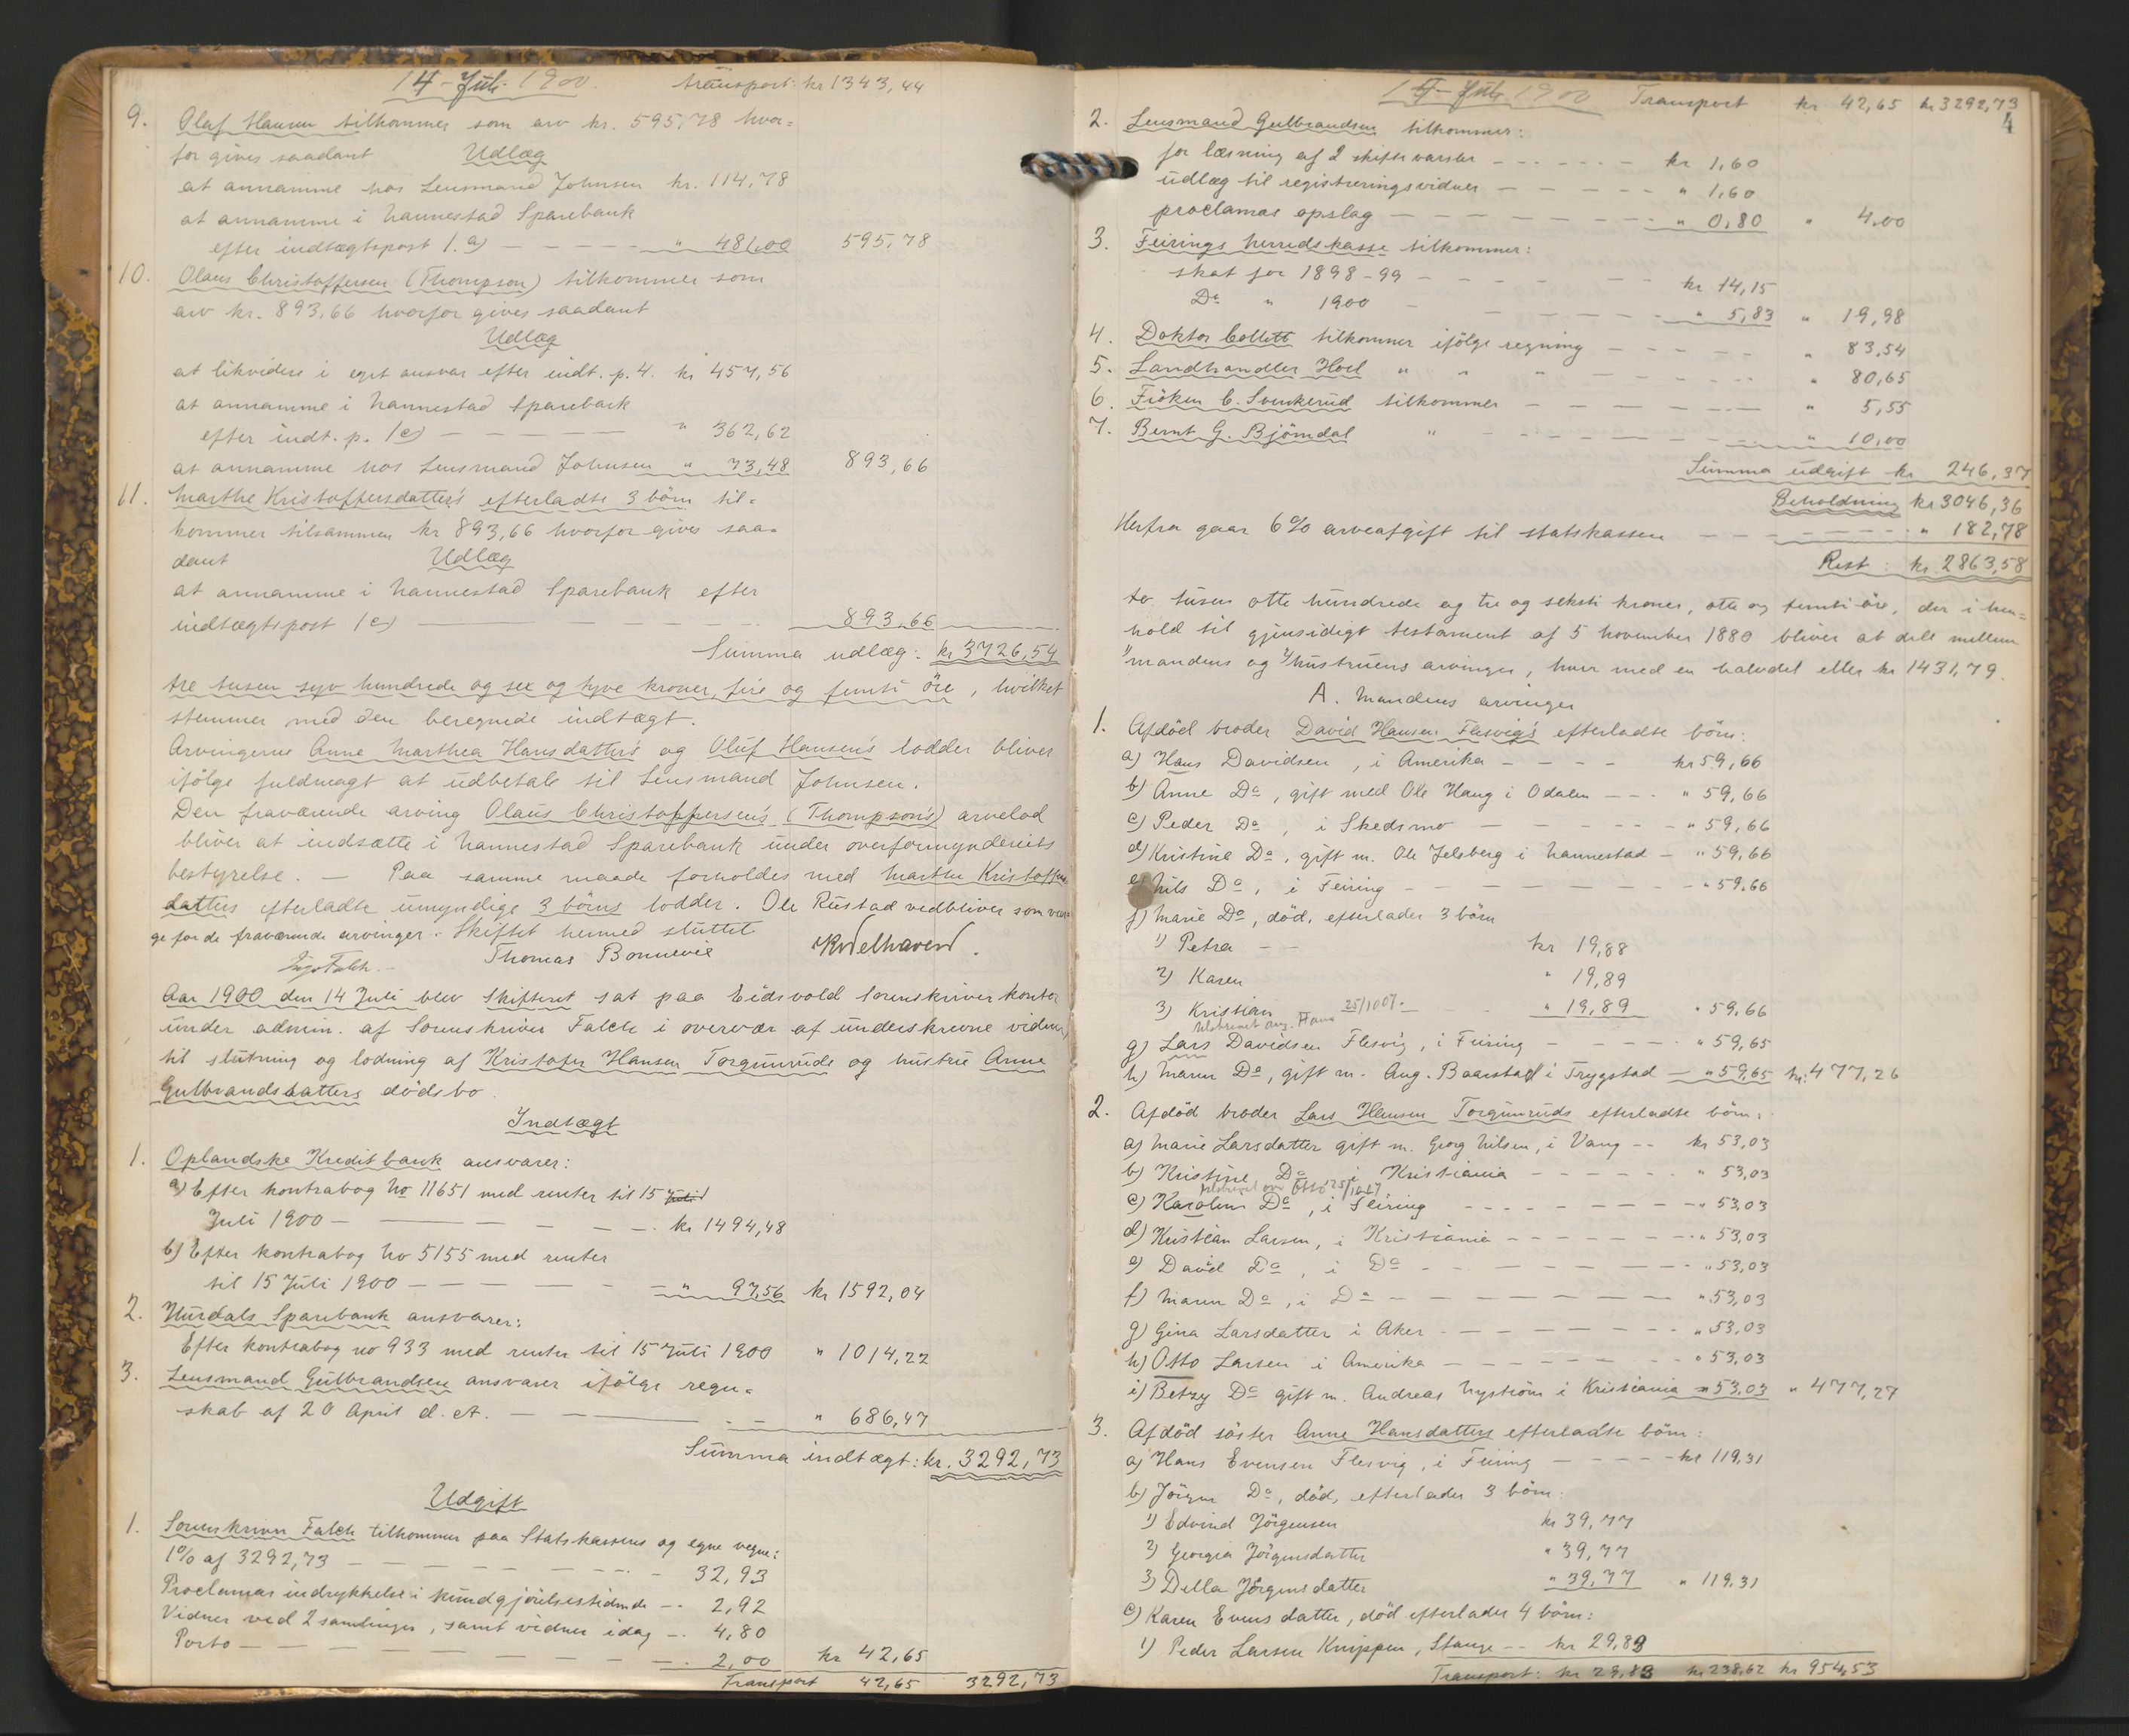 14 - Juli 1900. transport: kr 1343,44
9. Olaf Hansen tilkommer som arv kr. 595,78 hvor=
for gives saadant Udlæg
at annamme hos Lensmand Johnsen kr. 114,78
at annamme i Nannestad Sparebank
efter indtægtspost 1. a) — — — — — " 481,00 595,78
10. Olaus Christoffersen (Thompson) tilkommer som
arv kr. 893,66 hvorfor gives saadant
Udlæg
at likvidere i eget ansvar efter indt. p. 4. kr 457,56
at annamme i Nannestad Sparebank
efter indt. p. 1c) — — — — — " 362,62
at annamme hos Lensmand Johnsen " 73,48 893,66
11. Marthe Kristoffersdatter's efterladte 3 börn til=
kommer tilsammen kr 893,66 hvorfor gives saa=
dant Udlæg
at annamme i Nannestad Sparebank efter
indtægtspost 1c) — — — — 893,66
Summa udlæg: kr 3726,54
tre tusen syv hundrede og sex og tyve kroner, fire og femti öre, hvilket
stemmer med den beregnede indtægt.
Arvingerne Anne Marthea Hansdatters og Oluf Hansen's lodder bliver
ifölge fuldmagt at udbetale til Lensmand Johnsen.
Den fraværende arving Olaus Christoffersen's (Thompson's) arvelod
bliver at indsætte i Nannestad Sparebank under overformynderiets
bestyrelse. — Paa samme maade forholdes med Marthe Kristoffers
datters efterladte umyndige 3 börns lodder. Ole Rustad vedbliver som vær=
ge for de fraværende arvinger. Skiftet hermed sluttet
Falch. — Thomas Bonnevie KWelhaven.
Aar 1900 den 14 Juli blev Skifteret sat paa Eidsvold Sorenskriverkontor
under admin. af Sorenskriver Falch i overvær af underskrevne vidner,
til slutning og lodning af Kristofer Hansen Torgunruds og hustru Anne
Gulbrandsdatters dödsbo.
Indtægt
1. Oplandske Kreditbank ansvarer:
a) Efter kontrabog No 11651 med renter til 15 Juli
Juli 1900 — — — — — — kr 1494,48
b) Efter kontrabog No 5155 med renter
til 15 Juli 1900 — — — — — — " 97,56 kr 1592,04
2. Hurdals Sparebank ansvarer:
Efter kontrabog no 933 med renter til 15 Juli 1900 " 1014,22
3. Lensmand Gulbrandsen ansvarer ifölge regn=
skab af 20 April d. A. — — — — — " 686,47
Summa indtægt: kr. 3292,73
Udgift
1. Sorenskriver Falch tilkommer paa Statskassens og egne vegne:
1% af 3292,73 — — — — — — 32,93
Proclamas indrykkelse i kundgjörelsestidende — 2,92
Vidner ved 2 samlinger, samt vidner idag — 4,80
Porto — — — — — — 2,00 kr 42,65
Transport 42,65 3292,73
14 - Juli 1900 Transport kr 42,65 kr 3292,73
4
2. Lensmand Gulbrandsen tilkommer:
for læsning af 2 skiftevarsler — — — — kr 1,60
udlæg til registreringsvidner — — — — " 1,60
proclamas opslag — — — — — — " 0,80 " 4,00
3. Feirings herredskasse tilkommer:
skat for 1898-99 — — — — — kr 14,15
Do " 1900 — — — — — " 5,83 " 19,98
4. Doktor Collett tilkommer ifölge regning — — — — " 83,54
5. Landhandler Hoel " " " — — — — " 80,65
6. Fröken C. Svenkerud tilkommer — — — — — " 5,55
7. Bernt G. Björndal " — — — — — " 10,00
Summa udgift kr 246,37
Beholdning kr 3046,36
Herfra gaar 6% arveafgift til statskassen — — — — " 182,78
Rest: kr. 2863,58
to tusen otte hundrede og tre og seksti kroner, otte og femti öre, der i hen=
hold til gjensidigt testament af 5 november 1880 bliver at dele mellem
1) mandens og 2) hustruens arvinger, hver med en halvdel eller kr 1431,79.
A. Mandens arvinger
1. Afdöd broder David Hansen Flesvig's efterladte börn:
a) Hans Davidsen, i Amerika — — — — kr 59,66
b) Anne Do, gift med Ole Haug i Odalen — — — " 59,66
c) Peder Do, i Skedsmo — — — — — " 59,66
d) Kristine Do, gift m. Ole Jelsberg i Nannestad — " 59,66
e) Nils Do, i Feiring — — — — — — " 59,66
f) Marie Do, död, efterlader 3 börn
1) Petra — — kr 19,88
2) Karen " 19,89
3) Kristian 25/10 07. " 19,89 " 59,66
g) Lars Davidsen Flesvig, i Feiring — — — — " 59,65
h) Maren Do, gift m. Aug. Baarstad i Trygstad — " 59,65 kr. 477,26
2. Afdöd broder Lars Hansen Torgunruds efterladte börn:
a) Marie Larsdatter gift m. Georg Nilsen, i Vang — — kr 53,03
b) Kristine Do i Kristiania — — — — — " 53,03
c) Karoline Do, i Feiring — — — — — — " 53,03
d) Kristian Larsen, i Kristiania — — — — — " 53,03
e) David Do, i Do — — — — — — " 53,03
f) Maren Do, i Do — — — — — — " 53,03
g) Gina Larsdatter i Aker — — — — — — " 53,03
h) Otto Larsen i Amerika — — — — — — " 53,03
i) Betzy Do gift m. Andreas Nyström i Kristiania " 53,03 " 477,27
3. Afdöd söster Anne Hansdatters efterladte börn:
a) Hans Evensen Flesvig, i Feiring — — — — kr 119,31
b) Jörgen Do, död, efterlader 3 börn:
1) Edvind Jörgensen kr 39,77
2) Georgia Jörgensdatter " 39,77
3) Della Jörgensdatter " 39,77 " 119,31
c) Karen Evensdatter, död efterlader 4 börn:
1) Peder Larsen Knippen, Stange — — kr 29,83
Transport: kr 29,83 kr 238,62 kr 954,53